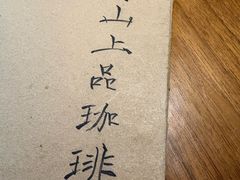 山上品珈琲